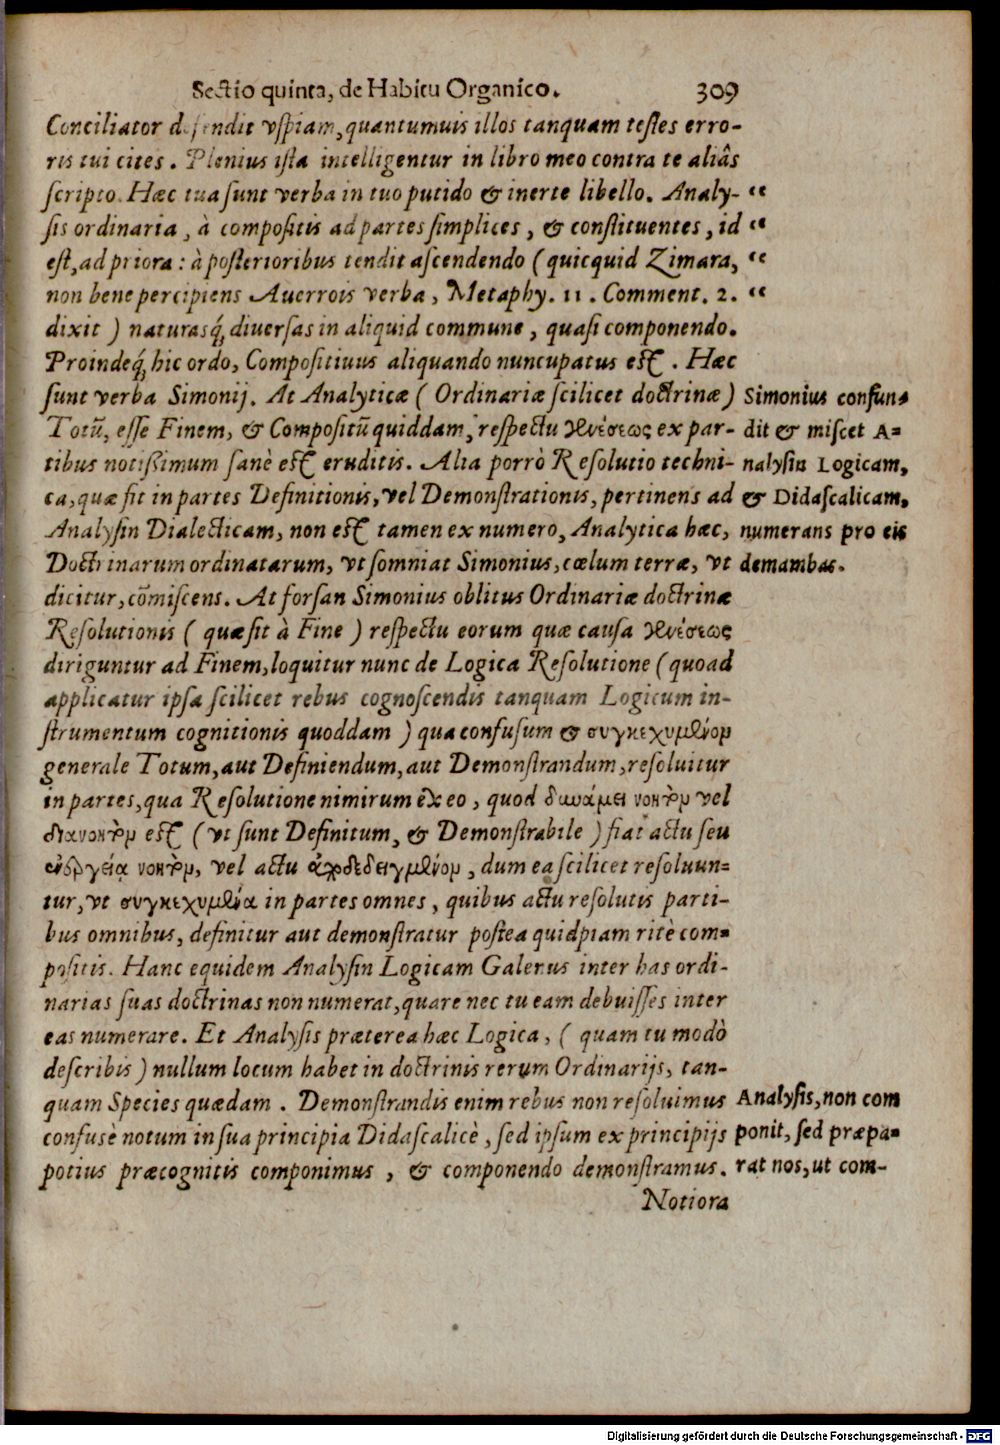 Sectio quinta, de Habitu Organico. 309
Conciliator defendit vspiam, quantumuis illos tanquam testes erro-
ris tui cites. Plenius ista intelligentur in libro meo contra te aliâs
scripto. Hæc tua sunt verba in tuo putido & inerte libello. Analy- “
sis ordinaria, à compositis ad partes simplices, & constituentes, id “
est, ad priora: à posterioribus tendit ascendendo (quicquid Zimara, “
non bene percipiens Auerrois verba, Metaphy. 11. Comment. 2. “
dixit) naturasq́; diuersas in aliquid commune, quasi componendo.
Proindeq́; hic ordo, Compositiuus aliquando nuncupatus est. Hæc
sunt verba Simonij. At Analyticæ (Ordinariæ scilicet doctrinæ)
Totũ, esse Finem, & Compositũ quiddam, respectu γενέσεως ex par-
tibus notißimum sanè est eruditis. Alia porrò Resolutio techni-
ca, quæ fit in partes Definitionis, vel Demonstrationis, pertinens ad
Analysin Dialecticam, non est tamen ex numero, Analytica hæc,
Doctrinarum ordinatarum, vt somniat Simonius, cœlum terræ, vt
dicitur, cõmiscens. At forsan Simonius oblitus Ordinariæ doctrinæ
Resolutionis (quæ fit à Fine) respectu eorum quæ causa γενέσεως
diriguntur ad Finem, loquitur nunc de Logica Resolutione (quoad
applicatur ipsa scilicet rebus cognoscendis tanquam Logicum in-
strumentum cognitionis quoddam) qua confusum & συγκεχυμένον
generale Totum, aut Definiendum, aut Demonstrandum, resoluitur
in partes, qua Resolutione nimirum ex eo, quod δυνάμει νοητὸν vel
διανοητὸν est (vt sunt Definitum, & Demonstrabile) fiat actu seu
ἐνεργείᾳ νοητὸν, vel actu ἀποδεδειγμένον, dum ea scilicet resoluun-
tur, vt συγκεχυμένα in partes omnes, quibus actu resolutis parti-
bus omnibus, definitur aut demonstratur postea quidpiam ritè com-
positis. Hanc equidem Analysin Logicam Galenus inter has ordi-
narias suas doctrinas non numerat, quare nec tu eam debuisses inter
eas numerare. Et Analysis præterea hæc Logica, (quam tu modò
describis) nullum locum habet in doctrinis rerum Ordinarijs, tan-
quam Species quædam. Demonstrandis enim rebus non resoluimus
confusè notum in sua principia Didascalicè, sed ipsum ex principijs
potius præcognitis componimus, & componendo demonstramus.
Notiora
Simonius confun-
dit & miscet A-
nalysin Logicam,
& Didascalicam,
numerans pro eis
demambas.
Analysis, non com
ponit, sed præpa-
rat nos, ut com-
Digitalisierung gefördert durch die Deutsche Forschungsgemeinschaft - DFG